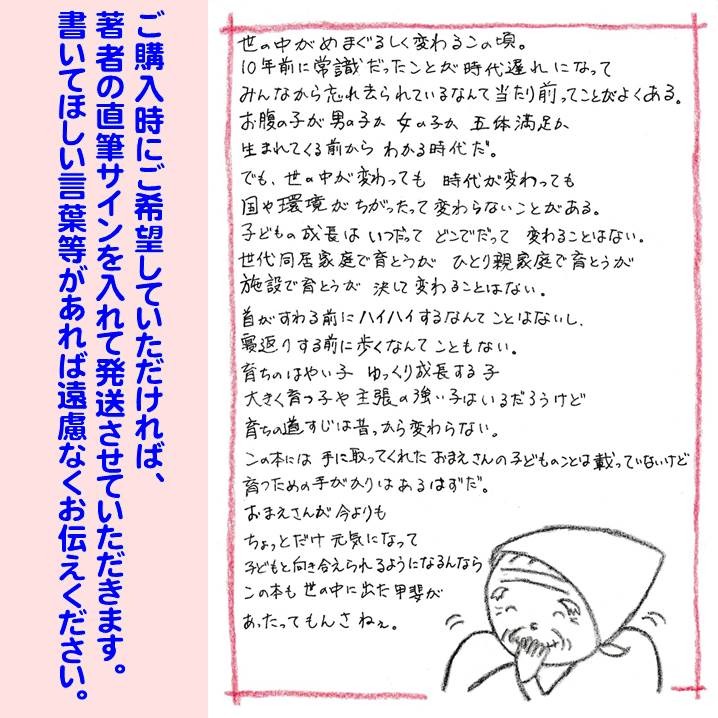 ご購入時にご希望していただければ、
著者の直筆サインを入れて発送させていただきます。
書いてほしい言葉等があれば遠慮なくお伝えください。
世の中がめまぐるしく変わるこの頃。
10年前に常識だったことが時代遅れになって
みんなから忘れ去られているなんて当たり前ってことがよくある。
お腹の子が男の子か女の子か五体満足か
生まれてくる前からわかる時代だ。
でも、世の中が変わっても 時代が変わっても
国や環境がちがったって変わらないことがある。
子どもの成長はいつだって どこでだって 変わることはない。
世代同居家庭で育とうが ひとり親家庭で育とうが
施設で育とうが 決して変わることはない。
首がすわる前にハイハイするなんてことはないし、
寝返りする前に歩くなんてこともない。
育ちのはやい子 ゆっくり成長する子
大きく育つ子や主張の強い子はいるだろうけど
育ちの道すじは昔っから変わらない。
この本には 手に取ってくれたおまえさんの子どものことは載っていないけど
育つための手がかりはあるはずだ。
おまえさんが今よりも
ちょっとだけ元気になって
子どもと向き合えられるようになるんなら
この本も世の中に出た甲斐が
あったってもんさねぇ。